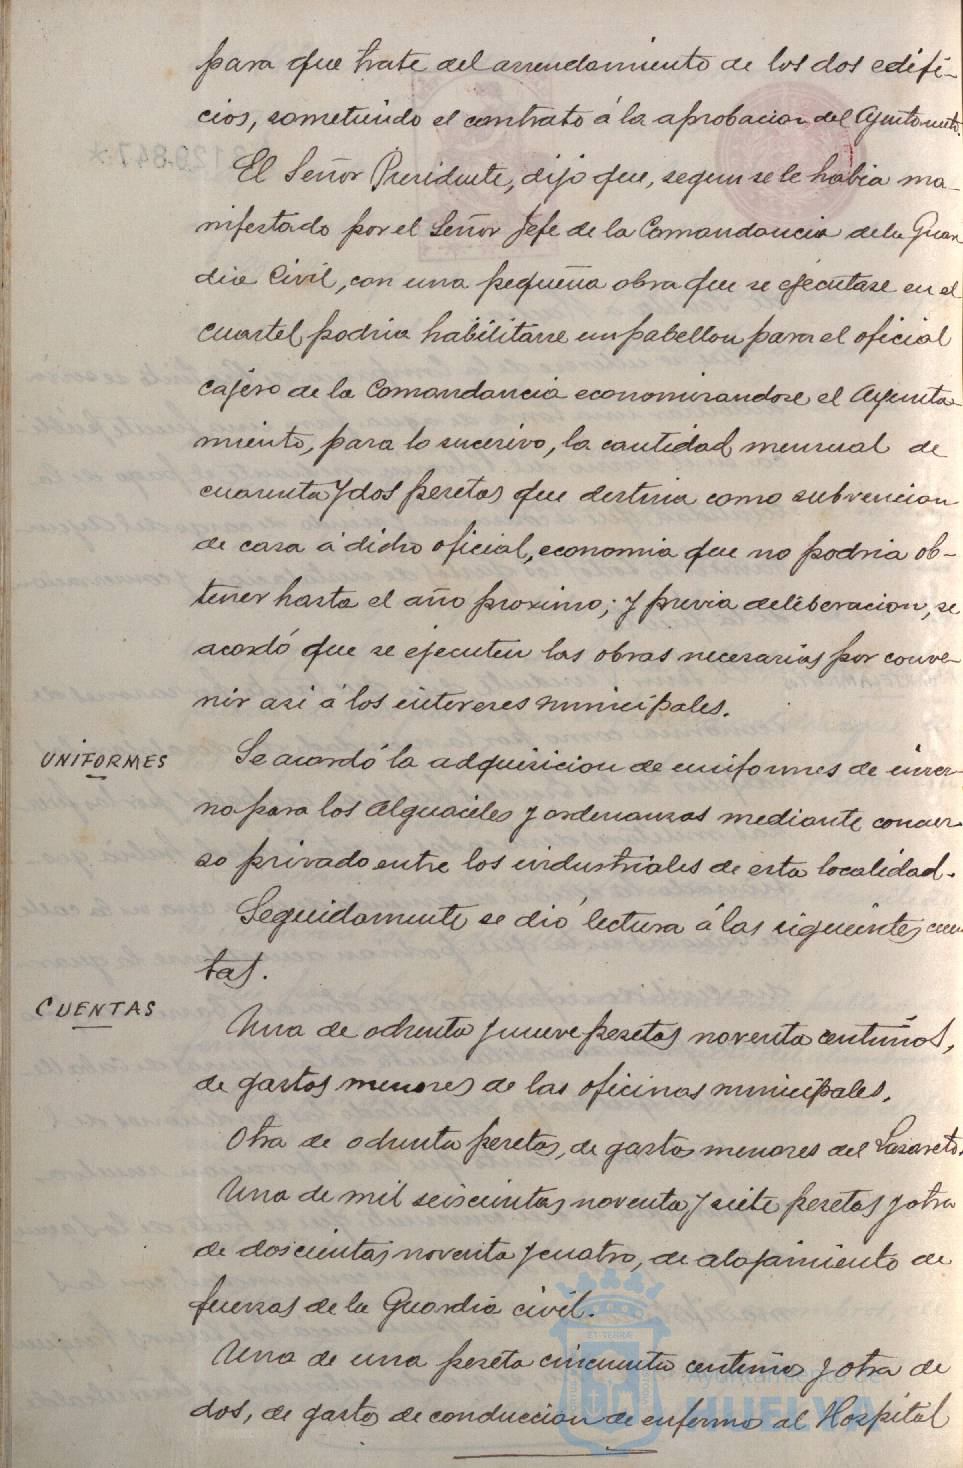 para que trate del arrendamiento de los dos edifi-
cios, sometiendo el contrato á la aprobacion del Ayuntamto.
El Señor Presidente, dijo que, segun se le habia ma-
nifestado por el Señor Jefe de la Comandancia de la Guar
dia Civil, con una pequeña obra que se ejecutase en el
cuartel podria habilitarse un pabellon para el oficial
cajero de la Comandancia economizandose el Ayunta-
miento, para lo sucesivo, la cantidad mensual de
cuarenta y dos pesetas que destina como subvencion
de casa á dicho oficial, economia que no podria ob-
tener hasta el año proximo; y previa deliberacion, se
acordó que se ejecuten las obras necesarias por conve-
nir asi á los intereses municipales.
UNIFORMES
Se acordó la adquisicion de uniformes de invier-
no para los Alguaciles y ordenanzas mediante concur-
so privado entre los industriales de esta localidad.
Seguidamente se dió lectura á las siguientes cuen
tas.
CUENTAS
Una de ochenta y nueve pesetas noventa centimos,
de gastos menores de las oficinas municipales.
Otra de ochenta pesetas, de gastos menores del Lazareto.
Una de mil seiscientas noventa y siete pesetas y otra
de doscientas noventa y cuatro, de alojamiento de
fuerzas de la Guardia civil.
Una de una peseta cincuenta centimos y otra de
dos, de gastos de conduccion de enfermos al Hospital
Ayuntamiento de
HUELVA